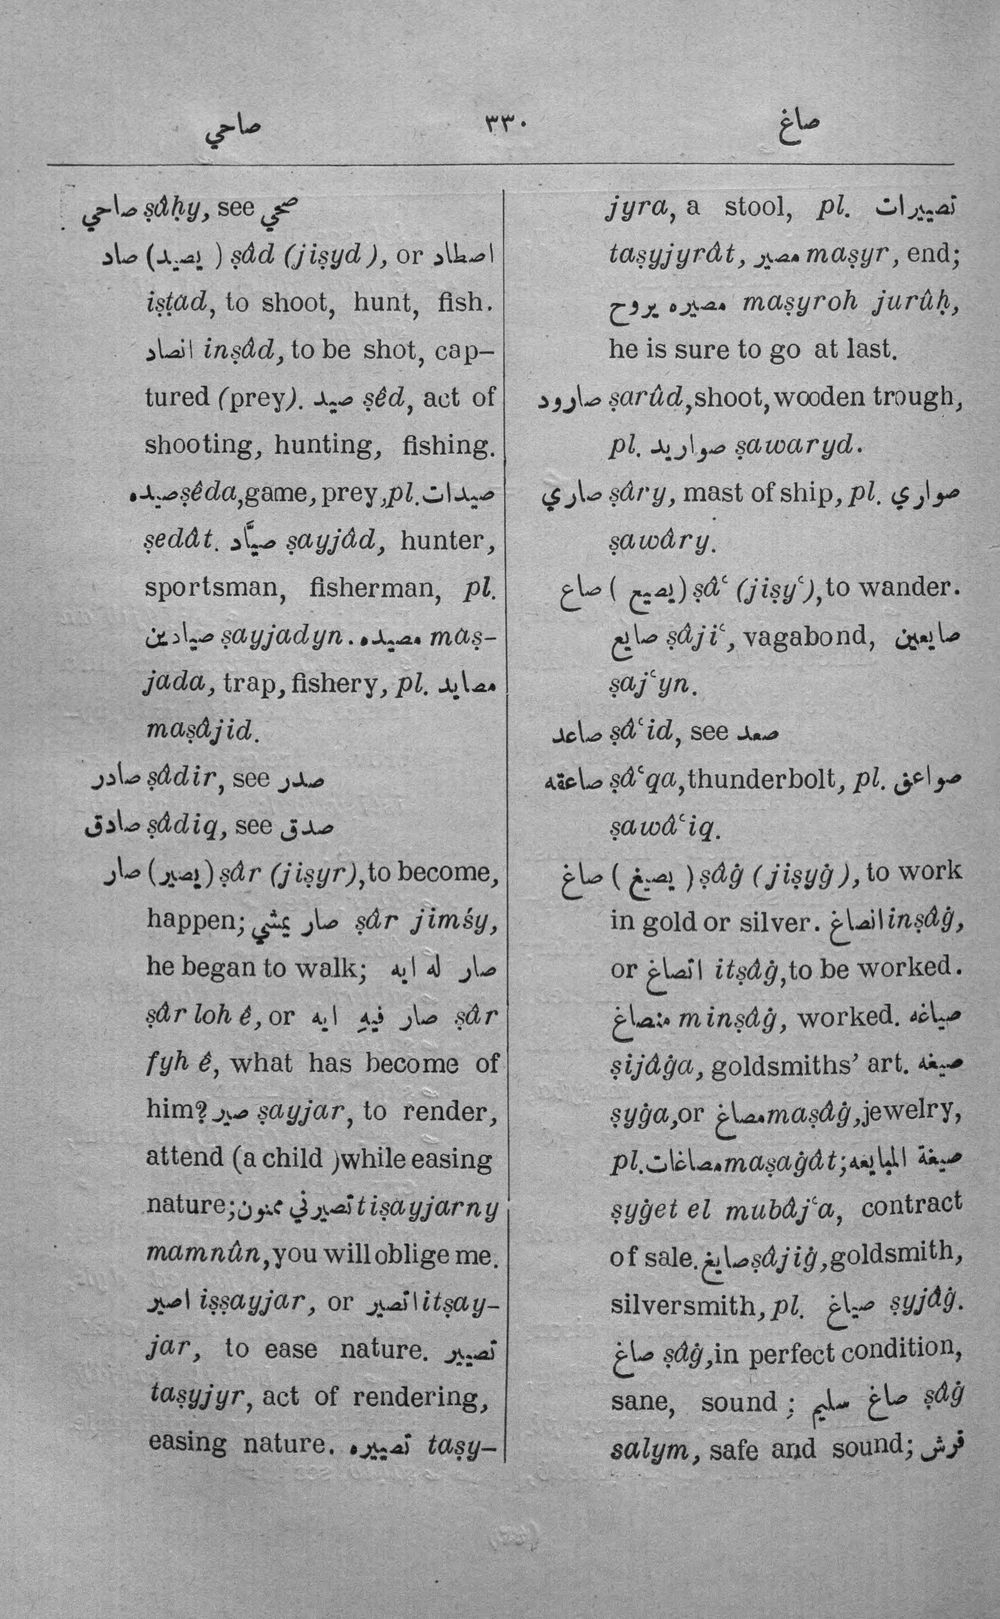 صاحي ٣٣٠ صاغ
صاحي ṣâḥy, see صحي
صاد (يصيد) ṣâd (jiṣyd), or اصطاد
iṣṭad, to shoot, hunt, fish.
انصاد inṣâd, to be shot, cap-
tured (prey). صيد ṣêd, act of
shooting, hunting, fishing.
صيده ṣêda, game, prey, pl. صيدات
ṣedât. صيَّاد ṣayjâd, hunter,
sportsman, fisherman, pl.
صيادين ṣayjadyn. مصيده maṣ-
jada, trap, fishery, pl. مصايد
maṣâjid.
صادر ṣâdir, see صدر
صادق ṣâdiq, see صدق
صار (يصير) ṣâr (jiṣyr), to become,
happen; صار يمشي ṣâr jimśy,
he began to walk; صار له ايه
ṣâr loh ê, or صار فيهِ ايه ṣâr
fyh ê, what has become of
him? صير ṣayjar, to render,
attend (a child) while easing
nature; تصيرني ممنون tiṣayjarny
mamnûn, you will oblige me.
اصير iṣṣayjar, or اتصير itṣay-
jar, to ease nature. تصيير
taṣyjyr, act of rendering,
easing nature. تصييره taṣy-
jyra, a stool, pl. تصييرات
taṣyjyrât, مصير maṣyr, end;
مصيره يروح maṣyroh jurûḥ,
he is sure to go at last.
صارود ṣarûd, shoot, wooden trough,
pl. صواريد ṣawaryd.
صاري ṣâry, mast of ship, pl. صواري
ṣawâry.
صاع (يصيع) ṣâʿ (jiṣyʿ), to wander.
صايع ṣâjiʿ, vagabond, صايعين
ṣajʿyn.
صاعد ṣâʿid, see صعد
صاعقه ṣâʿqa, thunderbolt, pl. صواعق
ṣawâʿiq.
صاغ (يصيغ) ṣâġ (jiṣyġ), to work
in gold or silver. انصاغ inṣâġ,
or اتصاغ itṣâġ, to be worked.
منصاغ minṣâġ, worked. صياغه
ṣijâġa, goldsmiths’ art. صيغه
ṣyġa, or مصاغ maṣâġ, jewelry,
pl. مصاغات maṣaġât; صيغة المبايعه
ṣyġet el mubâjʿa, contract
of sale. صايغ ṣâjiġ, goldsmith,
silversmith, pl. صياغ ṣyjâġ.
صاغ ṣâġ, in perfect condition,
sane, sound; صاغ سليم ṣâġ
salym, safe and sound; قرش